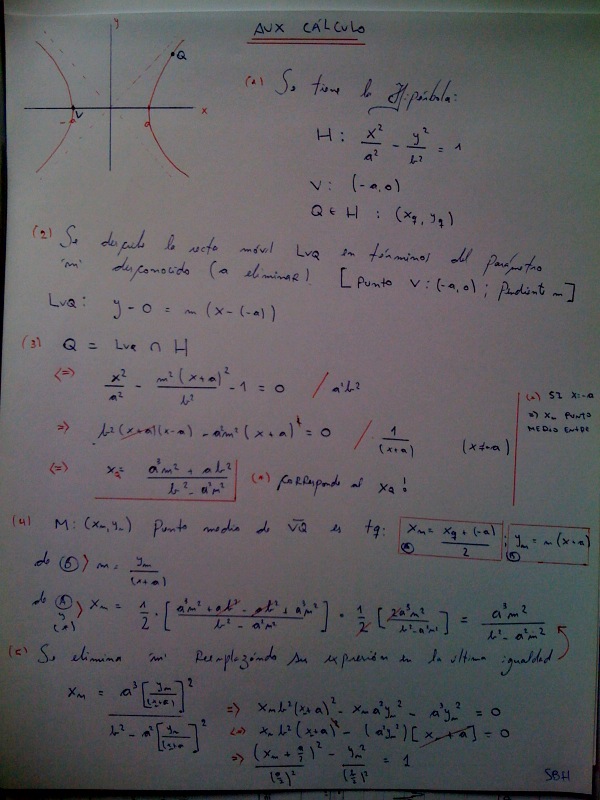 AUX CÁLCULO
y
Q
V
-a
a
x
(1) Se tiene la Hipérbola:
H: x²/a² - y²/b² = 1
V: (-a,0)
Q ∈ H : (x_q, y_q)
(2) Se describe la recta móvil LVQ en términos del parámetro
'm' desconocido (a eliminar). [Punto V:(-a,0); Pendiente m]
LVQ: y-0 = m(x-(-a))
(3) Q = LVQ ∩ H
<=> x²/a² - m²(x+a)²/b² - 1 = 0 / a²b²
=> b²(x+a)(x-a) - a²m²(x+a)² = 0 / 1/(x+a) (x≠-a)
<=> x_q = (a³m² + ab²)/(b² - a²m²) (*) corresponde al x_Q!
(*) SI x=-a
=> x_m PUNTO
MEDIO ENTRE
(4) M: (x_m, y_m) Punto medio de VQ es tq: x_m = (x_q + (-a))/2 ; y_m = m(x+a)
A
B
de (B) > m = y_m/(x+a)
de (A) y (*) > x_m = 1/2 · [(a³m² + ab² - ab² + a³m²)/(b² - a²m²)] = 1/2 [2a³m²/(b² - a²m²)] = a³m²/(b² - a²m²)
(5) Se elimina 'm' Reemplazándo su expresión en la última igualdad
x_m = a³[y_m/(x+a)]² / (b² - a²[y_m/(x+a)]²) => x_m b²(x+a)² - x_m a²y_m² - a³y_m² = 0
<=> x_m b²(x+a)² - (a²y_m²)[x_m + a] = 0
=> (x_m + a/2)²/(a/2)² - y_m²/(b/2)² = 1
SBH